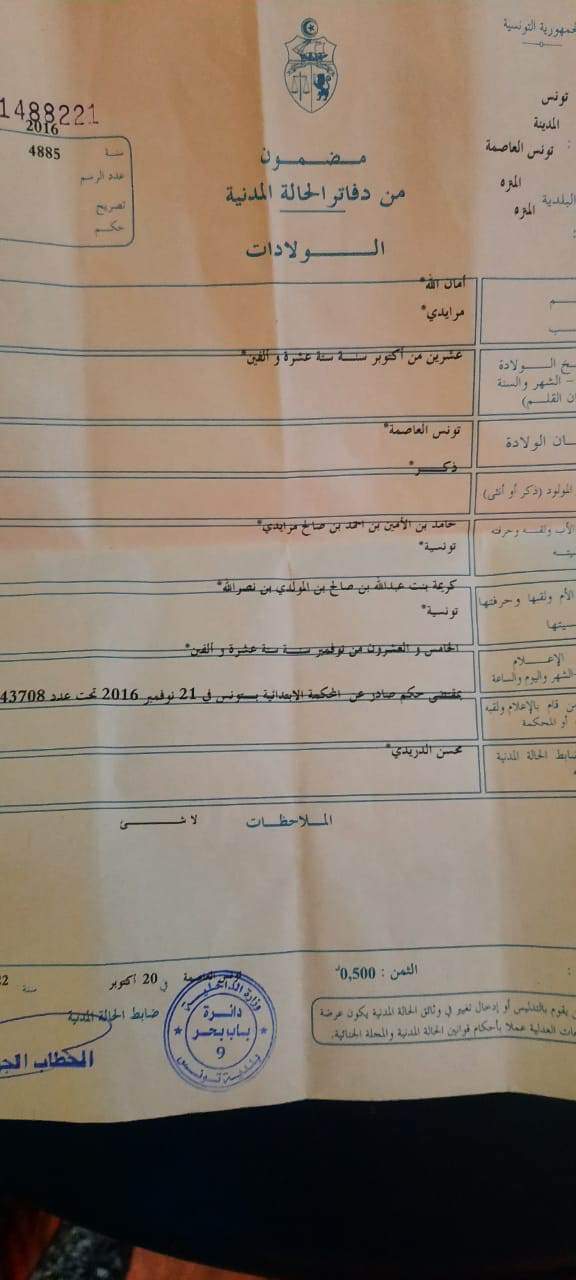 الجمهورية التونسية
تونس
المدينة
: تونس العاصمة
المنزه
البلدية المنزه
:
1488221
سنة 2016
عدد الرسم 4885
تصريح
حكم
مضمون
من دفاتر الحالة المدنية
الولادات
أمان الله*
مرايدي*
عشرين من أكتوبر سنة ستة عشرة و ألفين*
الولادة
– الشهر والسنة
ان القلم)
تونس العاصمة*
ان الولادة
ذكر*
المولود (ذكر أو أنثى)
حامد بن الأمين بن احمد بن صالح مرايدي*
الأب ولقبه وحرفته
تونسية*
كريمة بنت عبدالله بن صالح بن المولدي بن نصرالله*
الأم ولقبها وحرفتها
تونسية*
سيتها
الخامس و العشرون من نوفمبر سنة ستة عشرة و ألفين*
الإعلام
الشهر واليوم والساعة
بمقتضى حكم صادر عن المحكمة الابتدائية بتونس في 21 نوفمبر 2016 تحت عدد 43708
من قام بالإعلام ولقبه
أو المحكمة
محسن الدريدي*
ضابط الحالة المدنية
الملاحظات لا شئ
الثمن : 0,500د
تونس العاصمة في 20 أكتوبر سنة
ضابط الحالة المدنية
من يقوم بالتدليس أو إدخال تغيير في وثائق الحالة المدنية يكون عرضة
العدلية عملا بأحكام قوانين الحالة المدنية والمجلة الجنائية.
وزارة الداخلية
دائرة
باب بحر
9
بلدية تونس
الحطاب